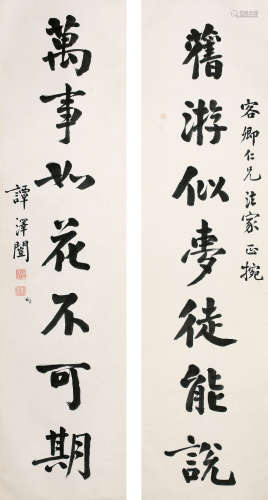 容卿仁兄法家正捥
舊游似夢徒能說
萬事如花不可期
譚澤闓